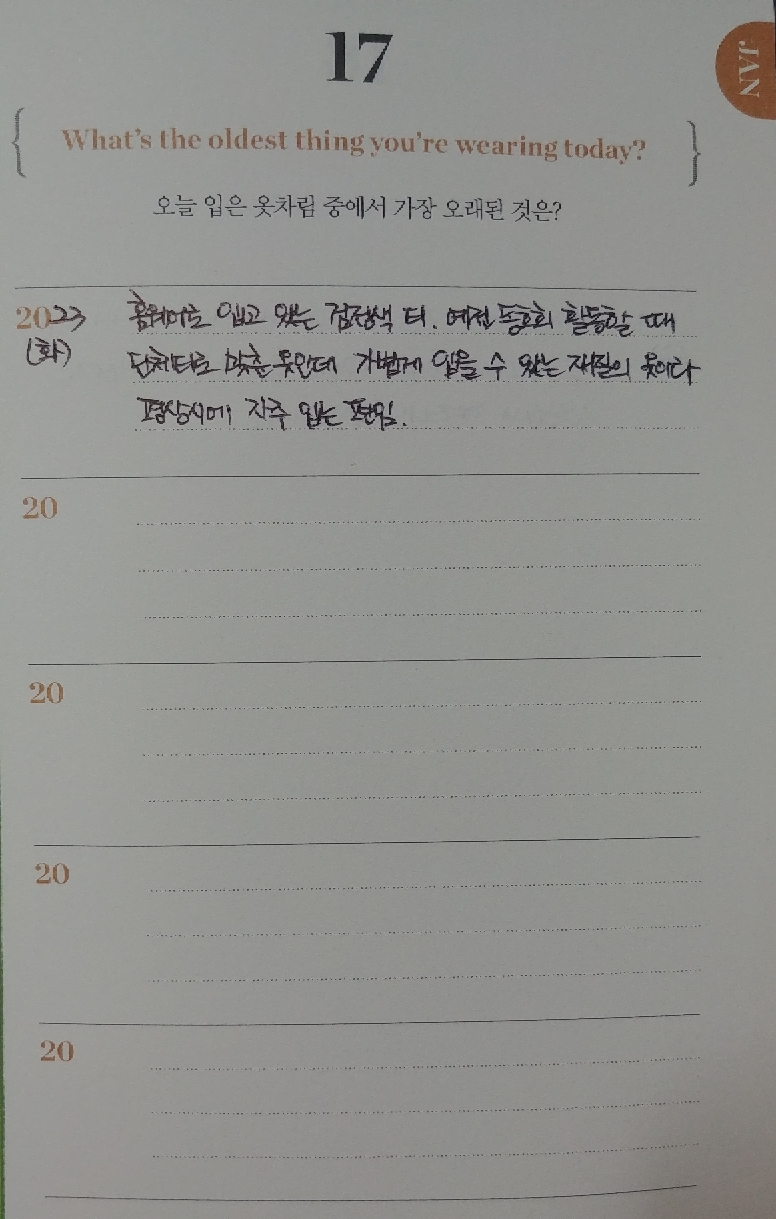 17
JAN
{ What's the oldest thing you're wearing today? }
오늘 입은 옷차림 중에서 가장 오래된 것은?
2023 홈웨어로 입고 있는 검정색 티. 예전 동호회 활동할 때
(화) 단체티로 맞춘 옷인데 가볍게 입을 수 있는 재질의 옷이라
평상시에 자주 입는 편임.
20
20
20
20